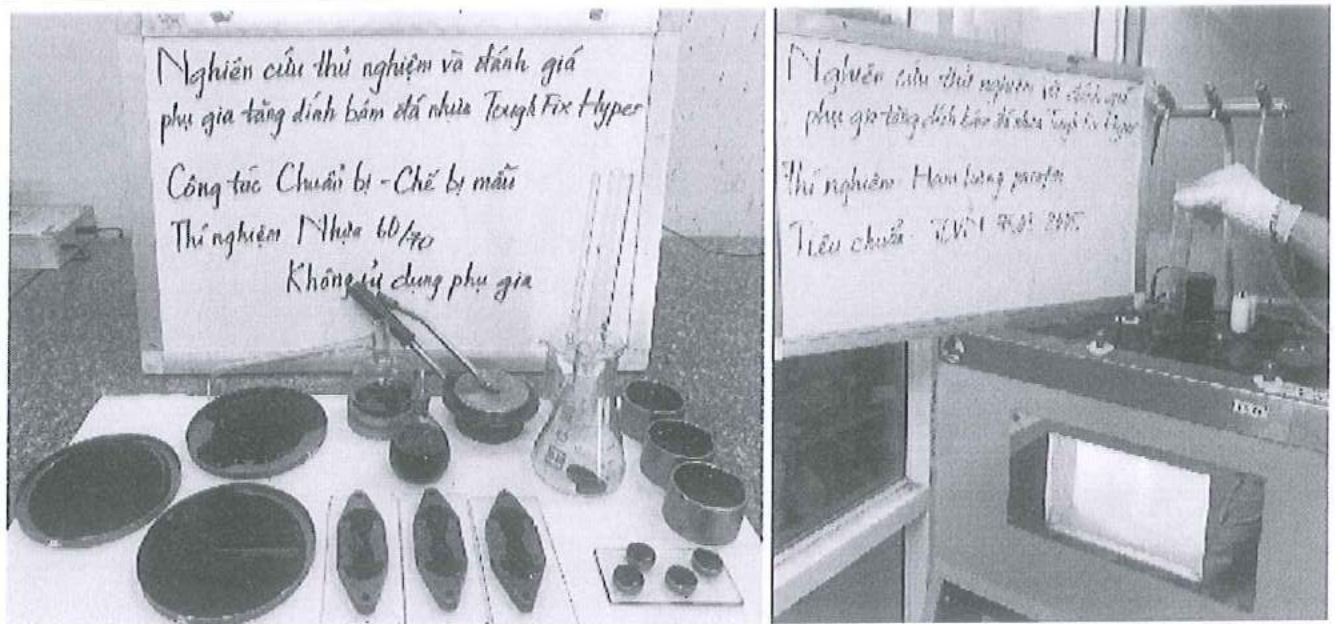 Nghiên cứu thử nghiệm và đánh giá
phụ gia tăng dính bám đá nhựa Tough Fix Hyper
Công tác Chuẩn bị - Chế bị mẫu
Thí nghiệm Nhựa 60/70
Không sử dụng phụ gia
Nghiên cứu thử nghiệm và đánh giá
phụ gia tăng dính bám đá nhựa Tough Fix Hyper
Thí nghiệm - Hàm lượng parafin
Tiêu chuẩn - TCVN